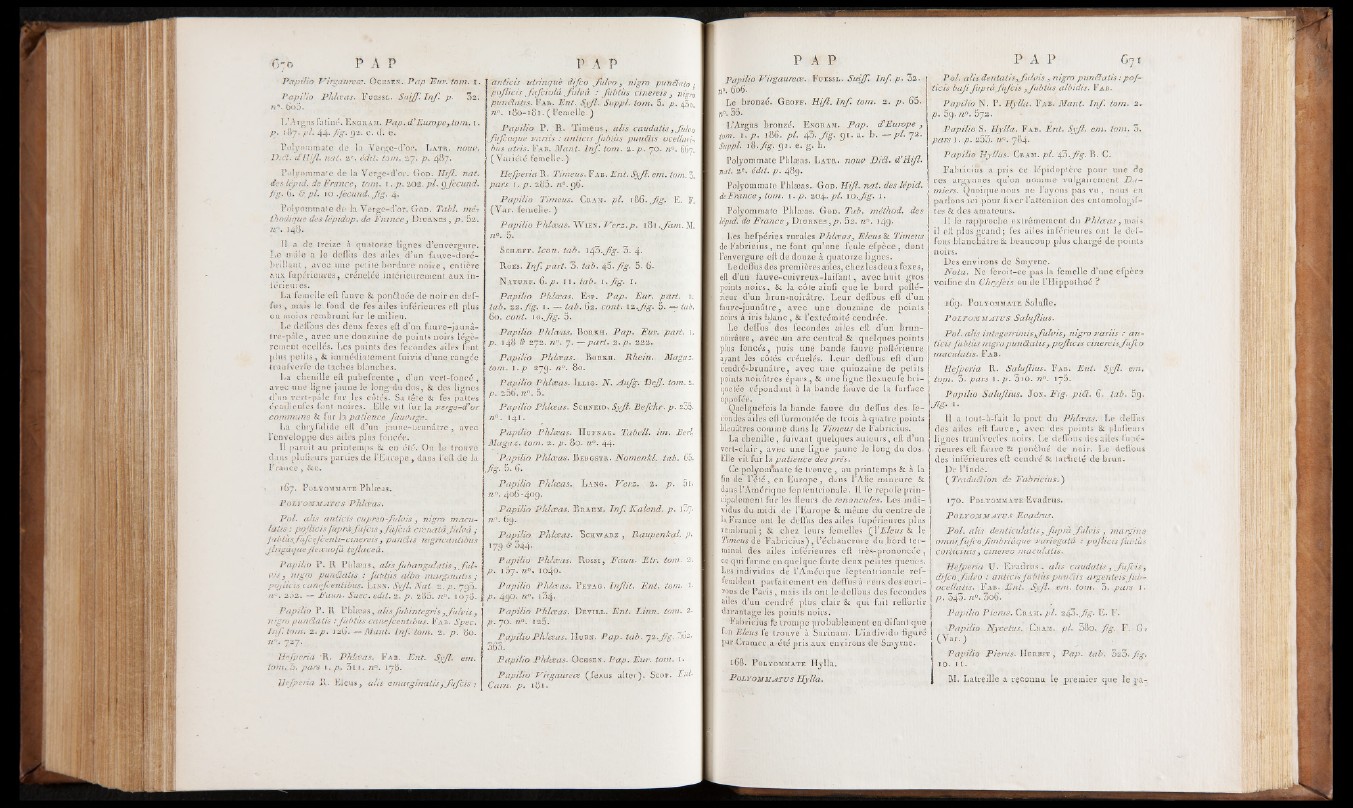 670 P A P
Papilio Virgaureæ. Ochsen. Pap Eur. tom. 1.
Papilio Phlæas. Fuessl. Suiff. Inf. p. 32.
n°. 605.
L'Argus satiné. Engram. Pap. d'Europe, tom. 1.
p. 187. pl. 44. fig. 92. c. d. e.
Polyommate de la Verge-d'or. Latr. nouv.
Dict. d'Hist. nat. 2e. édit. tom. 27. p. 487.
Polyommate de la Verge-d'or. God. Hist. nat.
des lépid. de France, tom. 1. p. 202. pl. 9 secund.
fig. 6. & pl. 10 secund. fig. 4.
Polyommate de la Verge-d'or. God. Tabl. mé-
thodique des lépidop. de France, Diurnes, p. 52.
n°. 148.
Il a de treize à quatorze lignes d'envergure.
Le mâle a le dessus des ailes d'un fauve-doré-
brillant, avec une petite bordure noire, entière
aux supérieures, crénelée intérieurement aux in-
férieures.
La femelle est fauve & ponctuée de noir en des-
sus, mais le fond de ses ailes inférieures est plus
ou moins rembruni sur le milieu.
Le dessous des deux sexes est d'un fauve-jaunâ-
tre-pâle, avec une douzaine de points noirs légè-
rement ocellés. Les points des secondes ailes sont
plus petits, & immédiatement suivis d'une rangée
transverse de taches blanches.
La chenille est pubescente, d'un vert-foncé,
avec une ligne jaune le long du dos, & des lignes
d'un vert-pâle sur les côtés. Sa tête & ses pattes
écailleuses sont noires. Elle vit sur la verge-d'or
commune & sur la patience sauvage.
La chrysalide est d'un jaune-brunâtre, avec
l'enveloppe des ailes plus foncée.
Il paroît au printemps & en été. On le trouve
dans plusieurs parties de l'Europe, dans l'est de la
France, &c.
167. Polyommate Phlæas.
Polyommatus Phlæas.
Pol. alis anticis cupreo-fulvis, nigro macu-
latis: posticis suprà fuscis, fasciâ crenatâ fulvâ,
subtùs fuscescenti-cinereis, punctis nigricantibus
strigâque flexuosâ rufescente.
Papilio P. R Phlæas, alis subangulatis, ful-
vis, nigro punctatis: subtùs albo marginatis;
posticis canescentibus. Linn. Syst. Nat. 2. p. 793.
n°. 252. — Faun. Suec. edit. 2. p. 285. n°. 1078.
Papilio P. R Phlæas, alis subintegris, fulvis,
nigro punctatis: subtùs canescentibus. Fab. Spec.
Inf. tom. 2. p. 126. — Mant. Inf. tom. 2. p. 80.
n°. 727.
Hesperia R. Phlæas. Fab. Ent. Syst. em.
tom. 3. pars 1. p. 311. n°. 178.
Hesperia R. Eleus, alis emarginatis, fuscis:
P A P
anticis utrinquè disco fulvo, nigro punctato;
posticis fasciolâ fulvâ: subtùs cinereis, nigro
punctatis. Fab. Ent. Syst. Suppl. tom. 5. p. 430.
n°. 180-181. (Femelle)
Papilio P. R. Timeus, alis caudatis, fulvo
fuscoque variis: anticis subtùs punctis ocellari-
bus atris. Fab. Mant. Inf. tom. 2. p. 70. n°. 667.
(Variété femelle.)
Hesperia R. Timeus. Fab. Ent. Syst. em. tom. 3.
pars 1. p. 285. n°. 96.
Papilio Timeus. Cram. pl. 186. fig. E. F.
(Var. femelle.)
Papilio Phlæas. Wien. Verz. p. 181, fam. M.
n°. 5.
Schæff. Icon. tab. 143. fig. 3. 4.
Roes. Inf. part. 3. tab. 45. fig. 5. 6.
Naturf. 6. p. 11. tab. 1. fig. 1.
Papilio Phlæas. Esp. Pap. Eur. part. 1.
tab. 22. fig. 1. — tab. 62. cont. 12. fig. 5. — tab.
60. cont. 10. fig. 5.
Papilio Phlæas. Borkh. Pap. Eur. part. 1.
p. 148 & 272. n°. 7. — part. 2. p. 222.
Papilio Phlæas. Borkh. Rhein. Magaz.
tom. 1. p 279. n°. 80.
Papilio Phlæas. Illig. N. Ausg. Dess. tom. 2.
p. 256. n°. 5.
Papilio Phlæas. Schneid. Syst. Beschr. p. 233.
n°. 141.
Papilio Phlæas. Hufnag. Tabell. im. Berl.
Magaz. tom. 2. p. 80. n°. 44.
Papilio Phlæas. Bergstr. Nomenkl. tab. 63.
fig. 5. 6.
Papilio Phlæas. Lang. Verz. 2. p. 51.
n°. 406-409.
Papilio Phlæas. Brahm. Inf. Kalend. p. 187.
n°. 69.
Papilio Phlæas. Schwarz, Raupenkal. p.
179 & 344.
Papilio Phlæas. Rossi, Faun. Etr. tom. 2.
p. 157. n°. 1040.
Papilio Phlæas. Petag. Instit. Ent. tom. 1.
p. 490. n°. 134.
Papilio Phlæas. Devill. Ent. Linn. tom. 2.
p. 70. n°. 126.
Papilio Phlæas. Hubn. Pap. tab. 72. fig. 362.
363.
Papilio Phlæas. Ochsen. Pap. Eur. tom. 1.
Papilio Virgaureæ (sexus alter). Scop. Ent.
Carn. p. 181.
P A P
Papilio Virgaureæ. Fuessl. Suiff. Inf. p. 32.
n°. 606.
Le bronzé. Geoff. Hist. Inf. tom. 2. p. 65.
n°. 35.
L'Argus bronzé. Engram. Pap. d'Europe,
tom. 1. p. 186. pl. 43. fig. 91. a. b. — pl. 72.
Suppl. 18. fig. 91. e. g. h.
Polyommate Phlæas. Latr. nouv Dict. d'Hist.
nat. 2e. édit. p. 489.
Polyommate Phlæas. God. Hist. nat. des lépid.
de France, tom. 1. p. 204. pl. 10. fig. 1.
Polyommate Phlæas. God. Tab. méthod. des
lépid. de France, Diurnes, p. 52. n°. 149.
Les hespéries rurales Phlæas, Eleus & Timeus
de Fabricius, ne font qu'une seule espèce, dont
l'envergure est de douze à quatorze lignes.
Le dessus des premières ailes, chez les deux sexes,
est d'un fauve-cuivreux-luisant, avec huit gros
points noirs, & la côte ainsi que le bord posté-
rieur d'un brun-noirâtre. Leur dessous est d'un
fauve-jaunâtre, avec une douzaine de points
noirs à iris blanc, & l'extrémité cendrée.
Le dessus des secondes ailes est d'un brun-
noirâtre, avec un arc central & quelques points
plus foncés, puis une bande fauve postérieure
ayant les côtés crénelés. Leur dessous est d'un
cendré-brunâtre, avec une quinzaine de petits
points noirâtres épars, & une ligne flexueuse bri-
quetée répondant à la bande fauve de la surface
opposée.
Quelquefois la bande fauve du dessus des se-
condes ailes est surmontée de trois à quatre points
bleuâtres comme dans le Timeus de Fabricius.
La chenille, suivant quelques auteurs, est d'un
vert-clair, avec une ligne jaune le long du dos.
Elle vit sur la patience des prés.
Ce polyommate se trouve, au printemps & à la
fin de l'été, en Europe, dans l'Asie mineure &
dans l'Amérique septentrionale. Il se repose prin-
cipalement sur les fleurs de renoncules. Les indi-
vidus du midi de l'Europe & même du centre de
la France ont le dessus des ailes supérieures plus
rembruni; & chez leurs femelles (l'Eleus & le
Timeus de Fabricius), l'échancrure du bord ter-
minal des ailes inférieures est très-prononcée,
ce qui forme en quelque sorte deux petites queues.
Les individus de l'Amérique septentrionale res-
semblent parfaitement en dessus à ceux des envi-
rons de Paris, mais ils ont le dessous des secondes
ailes d'un cendré plus clair & qui fait ressortir
davantage les points noirs.
Fabricius se trompe probablement en disant que
son Eleus se trouve à Surinam. L'individu figuré
par Cramer a été pris aux environs de Smyrne.
168. Polyommate Hylla.
Polyommatus Hylla.
P A P 671
Pol. alis dentatis, fulvis, nigro punctatis: pos-
ticis basi suprà fuscis, subtùs albidis. Fab.
Papilio N. P. Hylla. Fab. Mant. Inf. tom. 2.
p. 59. n°. 572.
Papilio S. Hylla. Fab. Ent. Syst. em. tom. 3.
pars 1. p. 253. n°. 784.
Papilio Hyllus. Cram. pl. 43. fig. B. C.
Fabricius a pris ce lépidoptère pour une de
ces argynnes qu'on nomme vulgairement Da-
miers. Quoique nous ne l'ayons pas vu, nous en
parlons ici pour fixer l'attention des entomologis-
tes & des amateurs.
Il se rapproche extrêmement du Phlæas, mais
il est plus grand; ses ailes inférieures ont le des-
sous blanchâtre & beaucoup plus chargé de points
noirs.
Des environs de Smyrne.
Nota. Ne seroit-ce pas la femelle d'une espèce
voisine du Chryseis ou de l'Hippothoé?
169. Polyommate Saluste.
Polyommatus Salustius.
Pol. alis integerrimis, fulvis, nigro variis: an-
ticis subtùs nigro punctatis, posticis cinereis, fusco
maculatis. Fab.
Hesperia R. Salustius. Fab. Ent. Syst. em.
tom. 3. pars 1. p. 310. n°. 175.
Papilio Salustius. Jon. Fig. pict. 6. tab. 59.
fig. 2.
Il a tout-à-fait le port du Phlæas. Le dessus
des ailes est fauve, avec des points & plusieurs
lignes transverses noirs. Le dessous des ailes supé-
rieures est fauve & ponctué de noir. Le dessous
des inférieures est cendré & tacheté de brun.
De l'Inde.
(Traduction de Fabricius.)
170. Polyommate Evadrus.
Polyommatus Evadrus.
Pol. alis denticulatis, suprà fulvis, margine
omni fusco fimbriâque variegatâ: posticis subtùs
concinnis, cinereo maculatis.
Hesperia U. Evadrus, alis caudatis, fuscis,
disco fulvo: anticis subtùs punctis argenteis sub-
ocellatis. Fab. Ent. Syst. em. tom. 3. pars 1.
p. 345. n°. 306.
Papilio Pierus. Cram. pl. 243. fig. E. F.
Papilio Nycetus. Cram. pl. 380. fig. F. G.
(Var.)
Papilio Pierus. Herbst, Pap. tab. 323. fig.
10. 11.
M. Latreille a reconnu le premier que le pa-